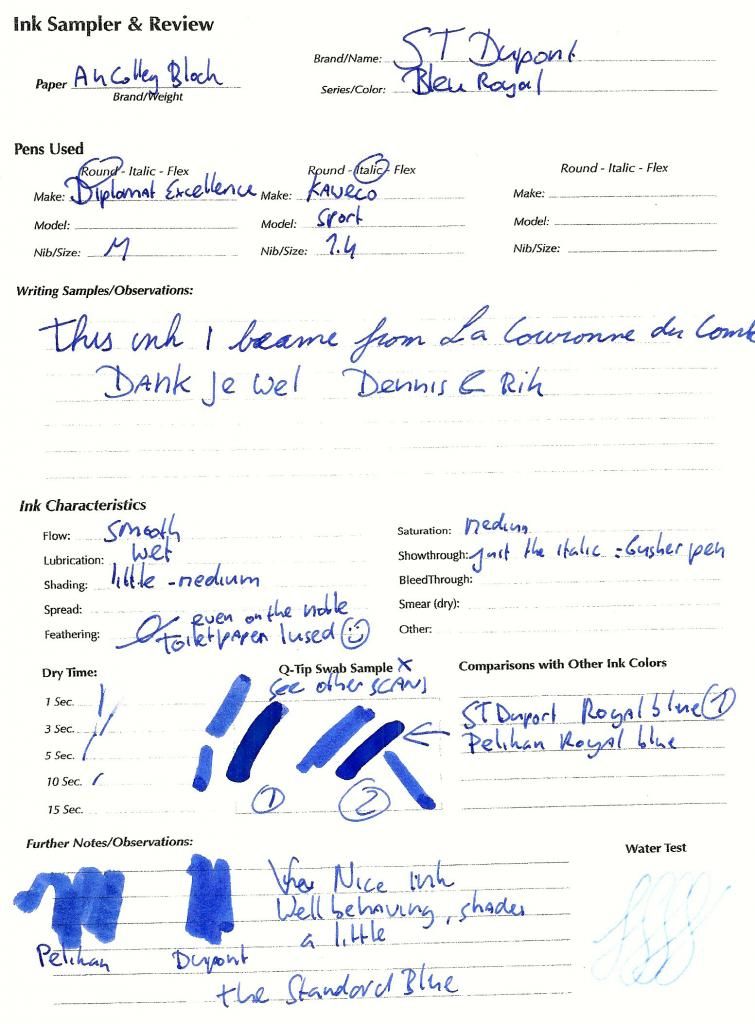 Ink Sampler & Review
Brand/Name: ST Dupont
Paper Ah Colley Block
Series/Color: Bleu Royal
Brand/Weight
Pens Used
Round - Italic - Flex
Round - Italic - Flex
Round - Italic - Flex
Make: Diplomat Excellence
Make: KAWECO
Make:
Model:
Model: Sport
Model:
Nib/Size: M
Nib/Size: 1.4
Nib/Size:
Writing Samples/Observations:
This ink I became from La Couronne du Comte
DANK je wel Dennis & Rik
Ink Characteristics
Flow: Smooth
Saturation: Medium
Lubrication: wet
Showthrough: just the italic = Gusher pen
Shading: little - medium
BleedThrough:
Spread:
Smear (dry):
Feathering: even on the noble
toiletpaper I used
Other:
Dry Time:
Q-Tip Swab Sample X
Comparisons with Other Ink Colors
See other SCANS
1 Sec.
ST Dupont Royal blue 1
3 Sec.
Pelikan Royal blue
5 Sec.
10 Sec.
15 Sec.
1 2
Further Notes/Observations:
Water Test
Very Nice ink
Well behaving, shades
a little
Pelikan Dupont
the Standard Blue